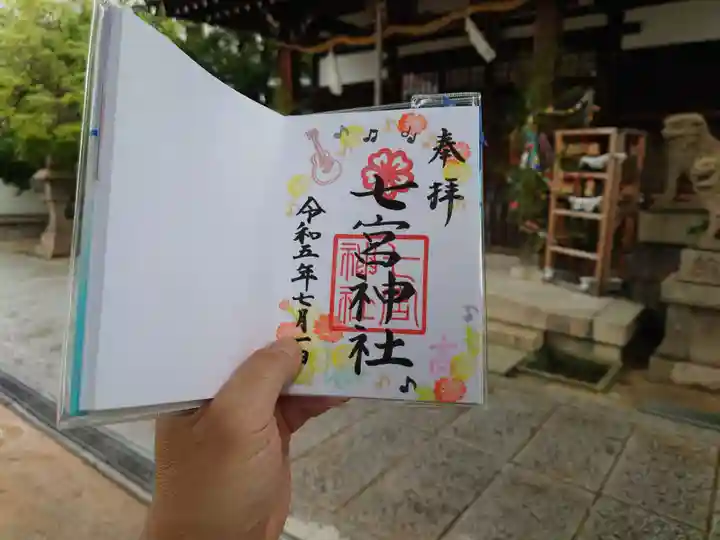 奉拝
七宮神社
七宮
神社
令和五年七月一日